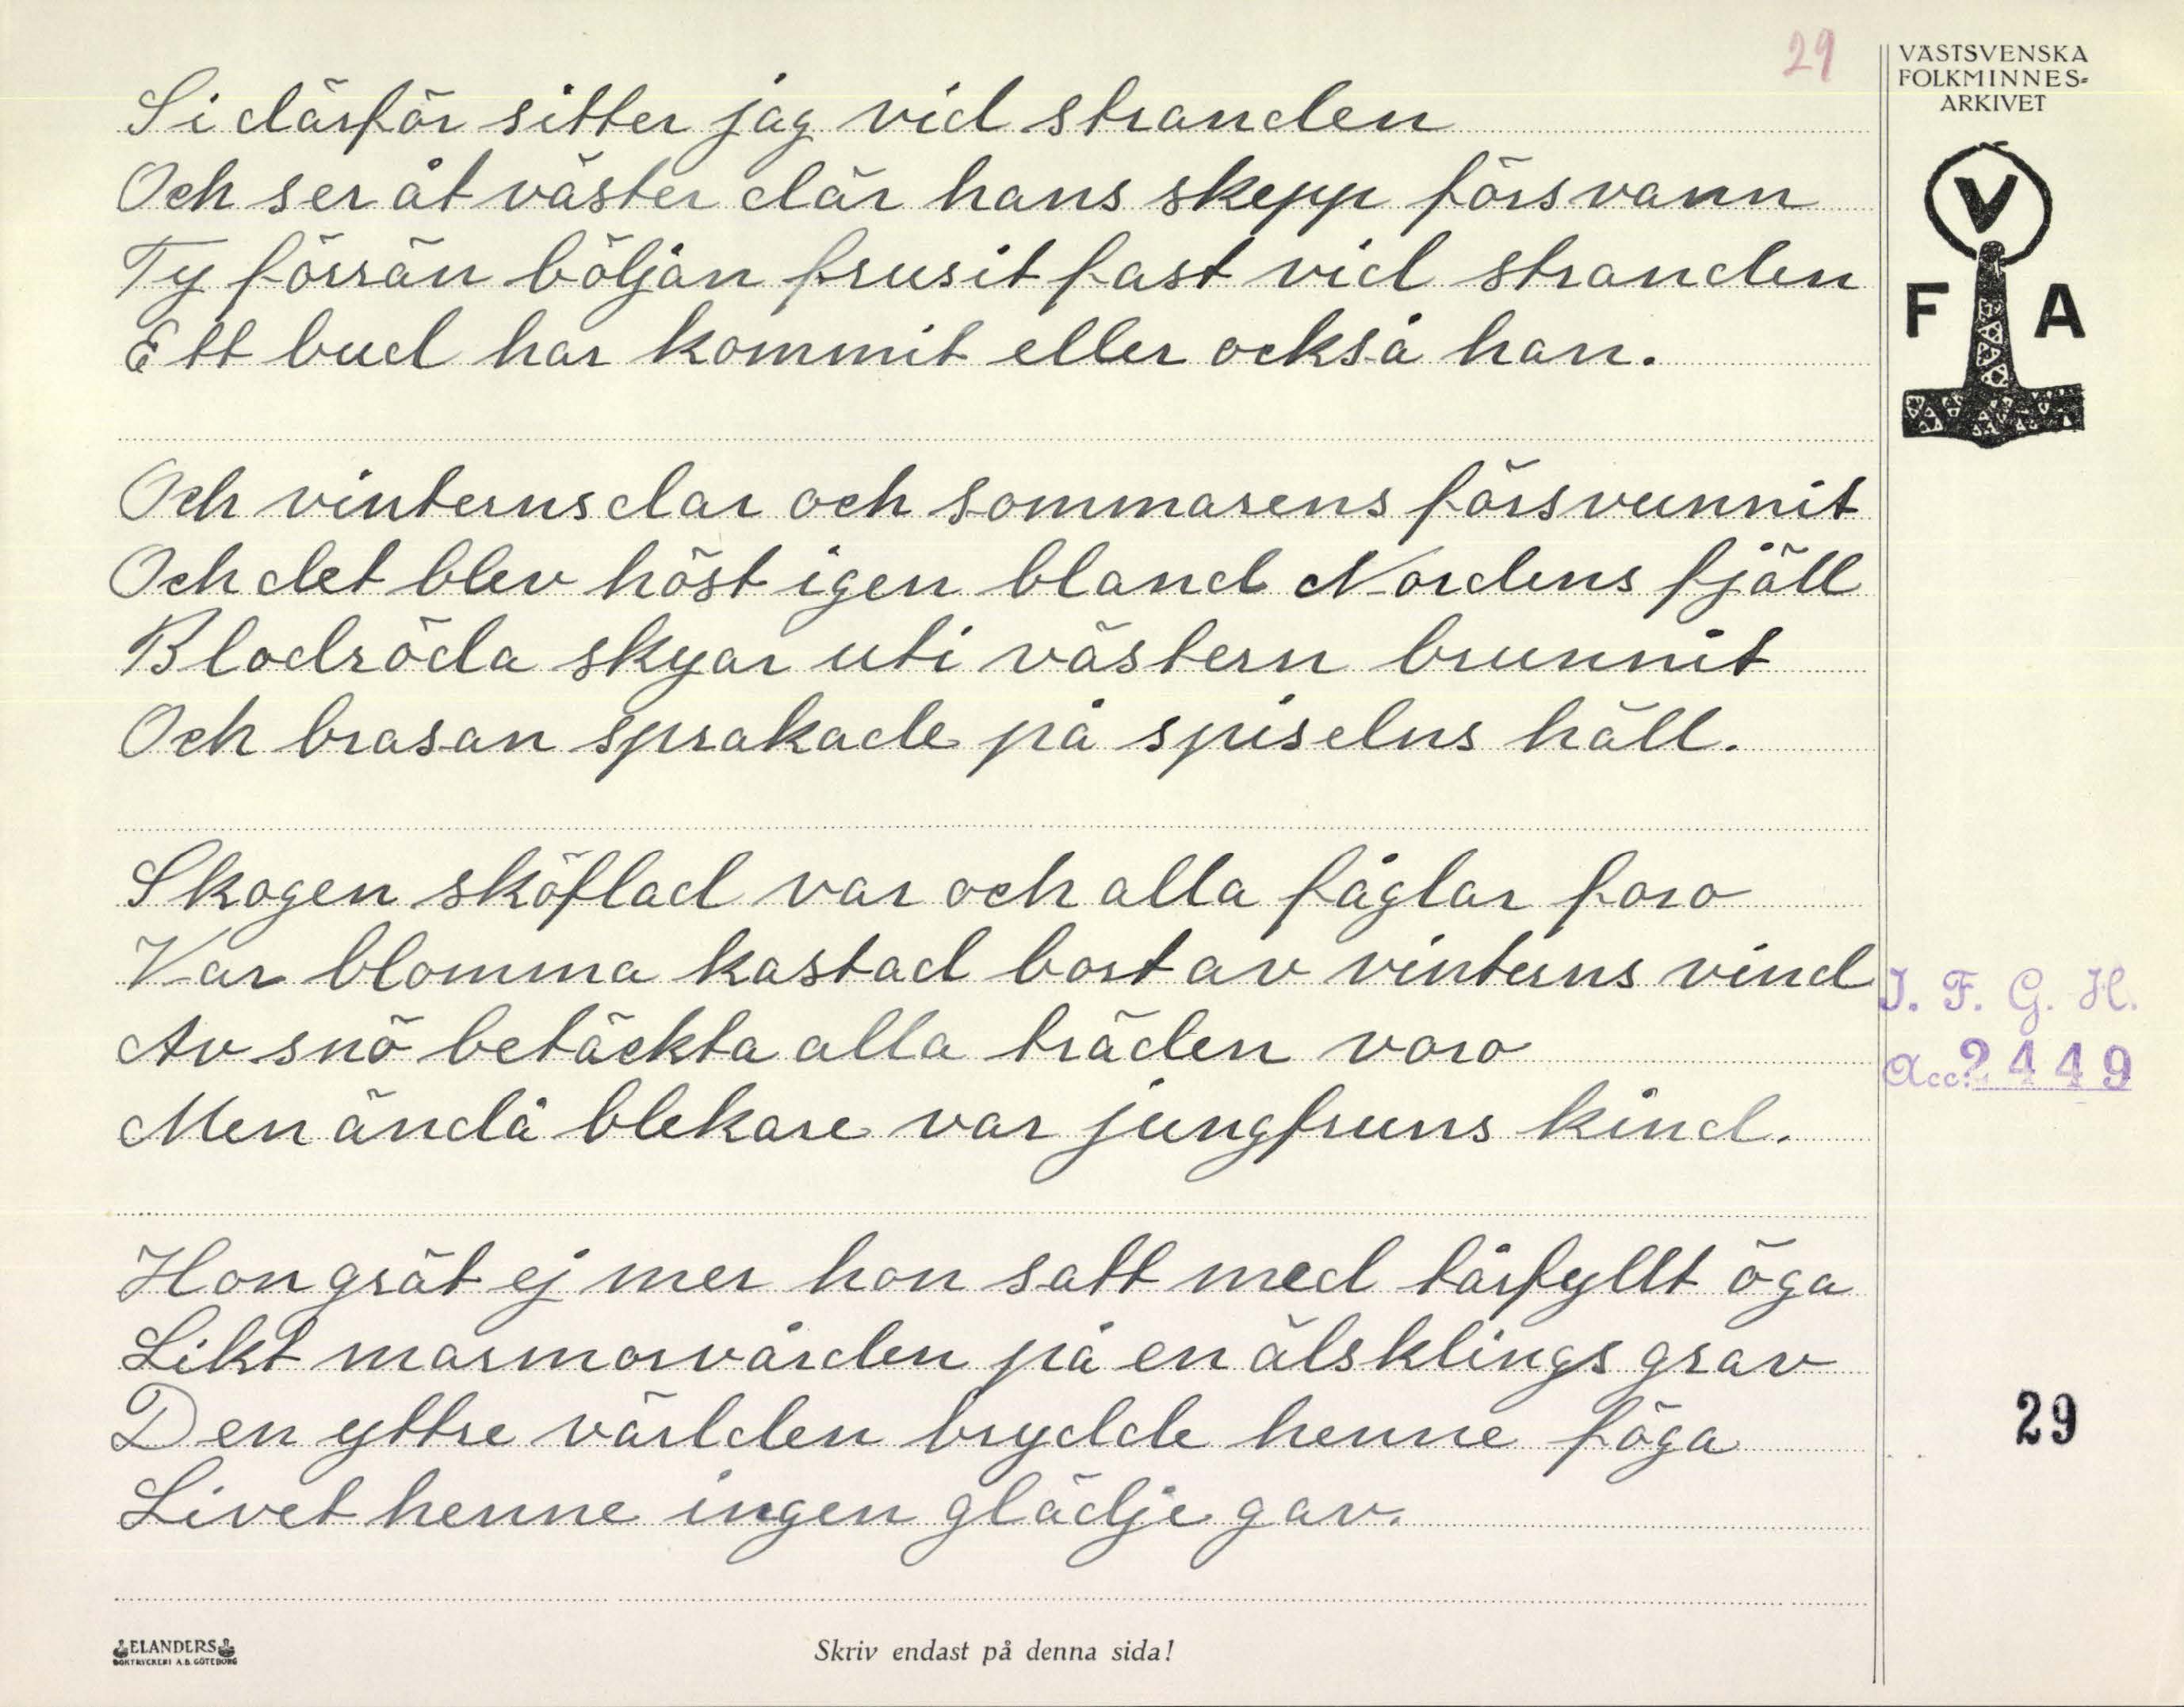 29
VÄSTSVENSKA
FOLKMINNES-
ARKIVET
V
F A
Si därför sitter jag vid stranden
Och ser åt väster där hans skepp försvann
Ty förrän böljan frusit fast vid stranden
Ett bud har kommit eller också han.
Och vinterns dar och sommarens försvunnit
Och det blev höst igen bland Nordens fjäll
Blodröda skyar uti västern brunnit
Och brasan sprakade på spiselns häll.
Skogen sköflad var och alla fåglar foro
Var blomma kastad bort av vinterns vind
Av snö betäckta alla träden voro
Men ändå blekare var jungfruns kind.
I. F. G. H.
Acc. 2449
Hon grät ej mer hon satt med tårfyllt öga
Likt marmorvården på en älsklings grav
Den yttre världen brydde henne föga
Livet henne ingen glädje gav.
29
ELANDERS
BOKTRYCKERI A.B. GÖTEBORG
Skriv endast på denna sida!